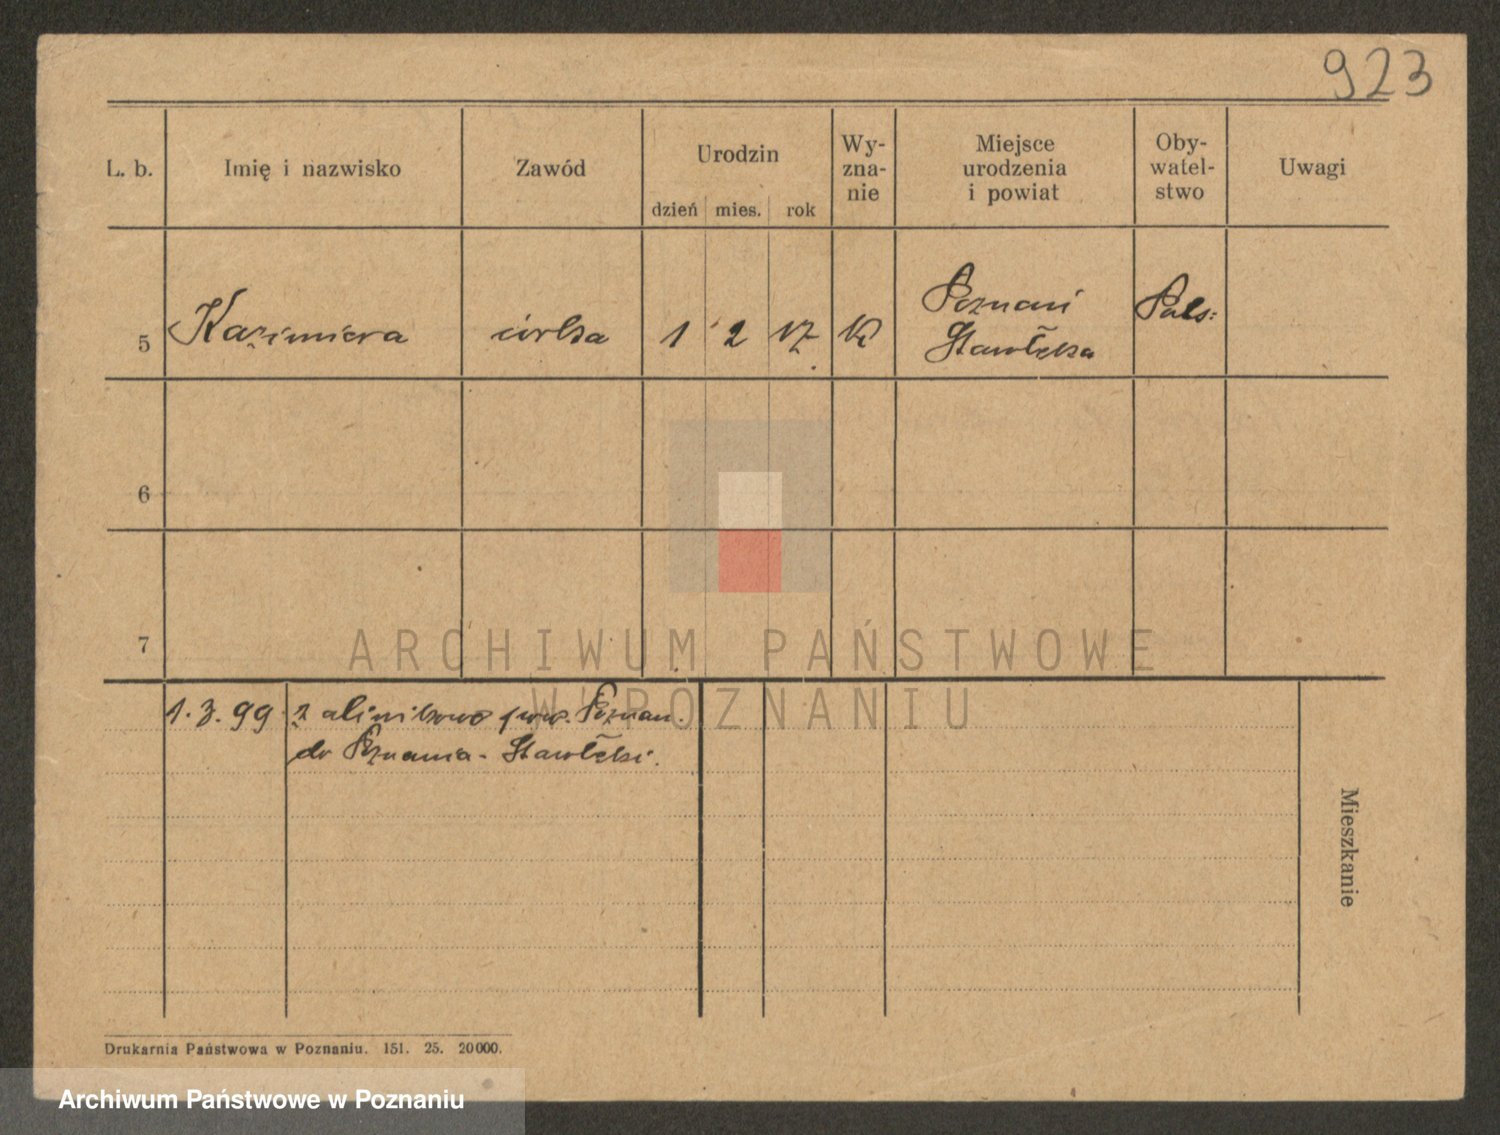 923
L. b.
Imię i nazwisko
Zawód
Urodzin
dzień mies. rok
Wy-
zna-
nie
Miejsce
urodzenia
i powiat
Oby-
watel-
stwo
Uwagi
5 Kazimiera córka 1 2 17 K
Poznań
Starołęka
Pols:
6
7
1.3.99 z pow. Poznań.
do Poznania - Starołęki.
Mieszkanie
Drukarnia Państwowa w Poznaniu. 151. 25. 20000.
ARCHIWUM PAŃSTWOWE
W POZNANIU
Archiwum Państwowe w Poznaniu